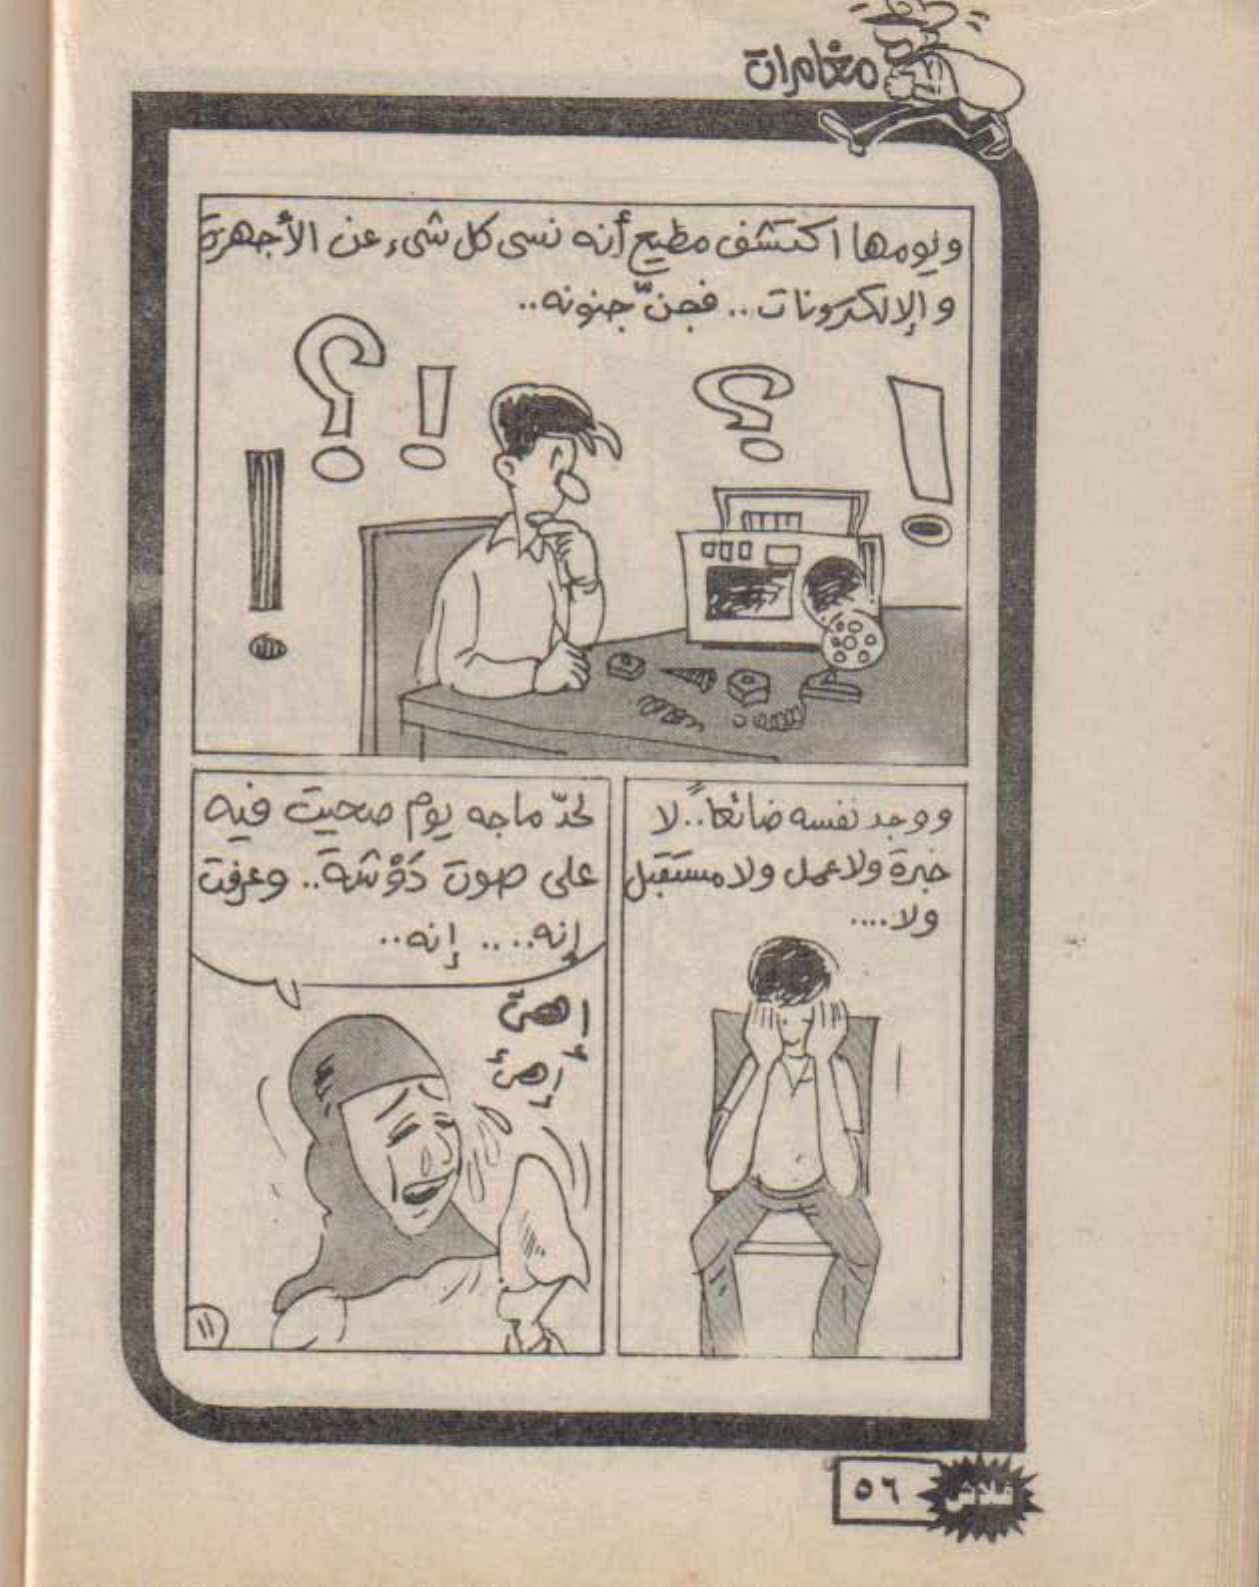 مغامرات
ويومها اكتشف مطيع أنه نسى كل شىء عن الأجهزة
والإلكترونات.. فجنّ جنونه..
ووجد نفسه ضائعاً.. لا
خبرة ولا عمل ولا مستقبل
ولا....
لحدّ ماجه يوم صحيت فيه
على صوت دَوْشَة.. وعرفت
إنه.... إنه..
إهئ
إهئ
١١
فلاش
٥٦